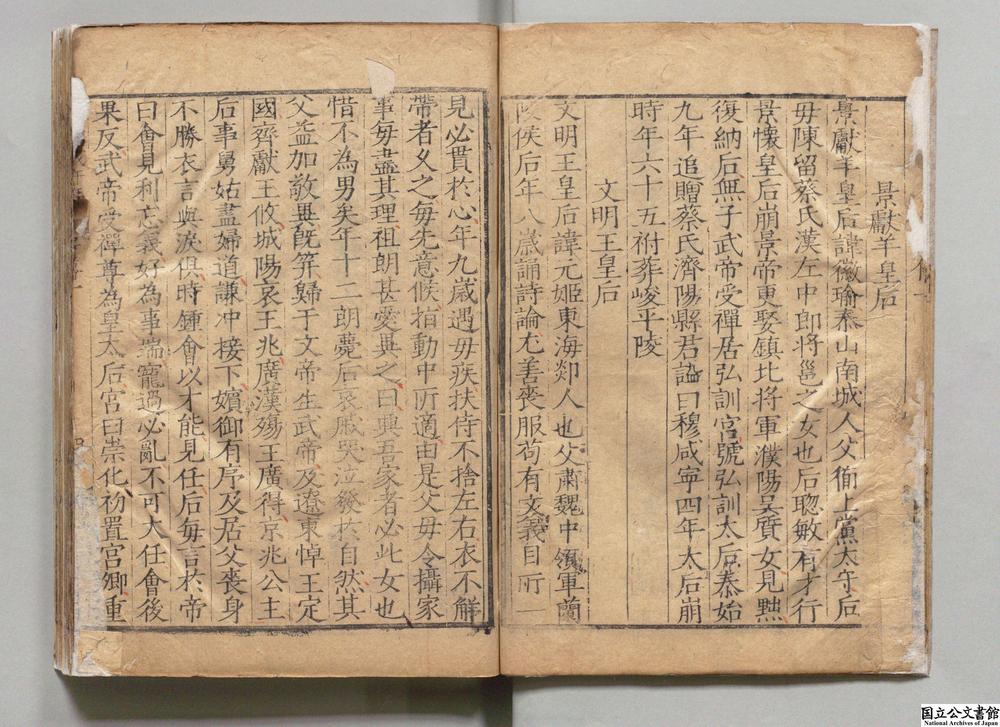 景獻羊皇后
景獻羊皇后諱徽瑜泰山南城人父衟上黨太守后
毋陳留蔡氏漢左中郎将邕之女也后聦敏有才行
景懷皇后崩景帝更娶鎮北将軍濮陽吴質女見黜
復納后無子武帝受禪居弘訓宮號弘訓太后泰始
九年追贈蔡氏濟陽縣君謚曰穆咸寕四年太后崩
時年六十五祔葬峻平陵
文明王皇后
文明王皇后諱元姬東海郯人也父肅魏中領軍蘭
陵侯后年八歳誦詩論尤善喪服茍有文義目所一
見必貫於心年九歳遇毋疾扶侍不捨左右衣不解
帶者乆之毎先意候指動中所適由是父毋令攝家
事毎盡其理祖朗甚愛異之曰興吾家者必此女也
惜不為男矣年十二朗薨后哀戚哭泣發於自然其
父益加敬異旣笄歸于文帝生武帝及遼東悼王定
國齊獻王攸城陽哀王兆廣漢殤王廣徳京兆公主
后事舅姑盡婦道謙冲接下嬪御有序及居父喪身
不勝衣言與淚俱時鍾會以才能見任后毎言於帝
曰會見利忘義好為事端寵過必亂不可大任會後
果反武帝受禪尊為皇太后宮曰崇化初置宮卿重
国立公文書館
National Archives of Japan